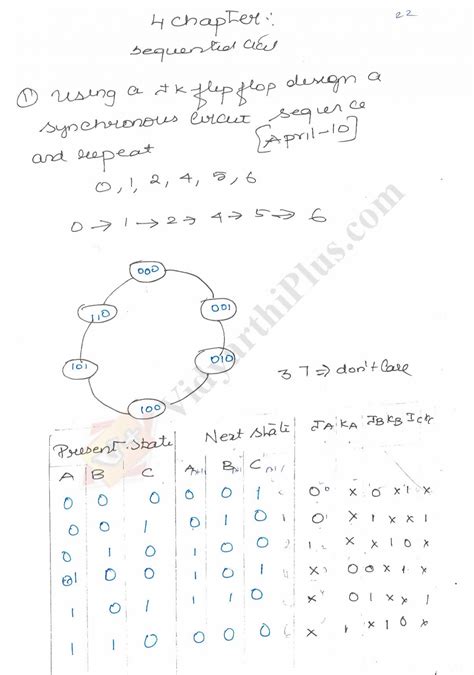 22
4 chapter:
sequential
① Using a JK flipflop design a
synchronous circuit sequence
and repeat [April-10]
0, 1, 2, 4, 5, 6
0 → 1 → 2 → 4 → 5 → 6
000
110 001
101 010
100
3 7 ⇒ don't care
VidyarthiPlus.com
Present state Next state JA KA JB KB JC KC
A B C An+1 Bn+1 Cn+1
0 0 0 0 0 1 0 x 0 x 1 x
0 0 1 0 1 0 0 x 1 x x 1
0 1 0 1 0 0 1 x x 1 0 x
1 0 0 1 0 1 x 0 0 x 1 x
1 0 1 1 1 0 x 0 1 x x 1
1 1 0 0 0 0 x 1 x 1 0 x